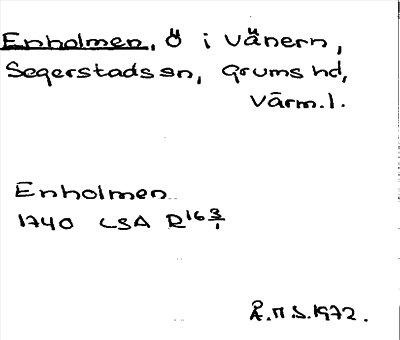 Enholmen, Ö i Vänern,
Segerstads sn, Grums hd,
Värm.l.
Enholmen
1740 LSA R16 3/1
Å.N.S.1972.